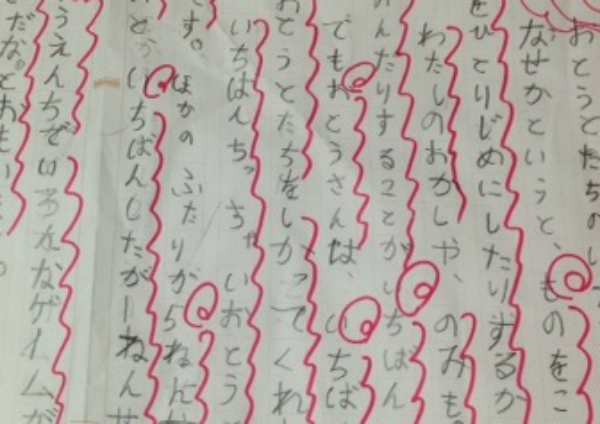 おとうとたちのし
なぜかというと、ものをこ
をひとりじめにしたりするか
わたしのおかしや、のみも
のんだりすることがいちばん
でもおとうさんは、いちば
おとうとたちをしかってくれ
いちばんちっちゃいおとう
す。ほかのふたりが5ねんせ
いちばんしたが1ねんせ
うえんちでいろんなゲームが
だな。とおもい